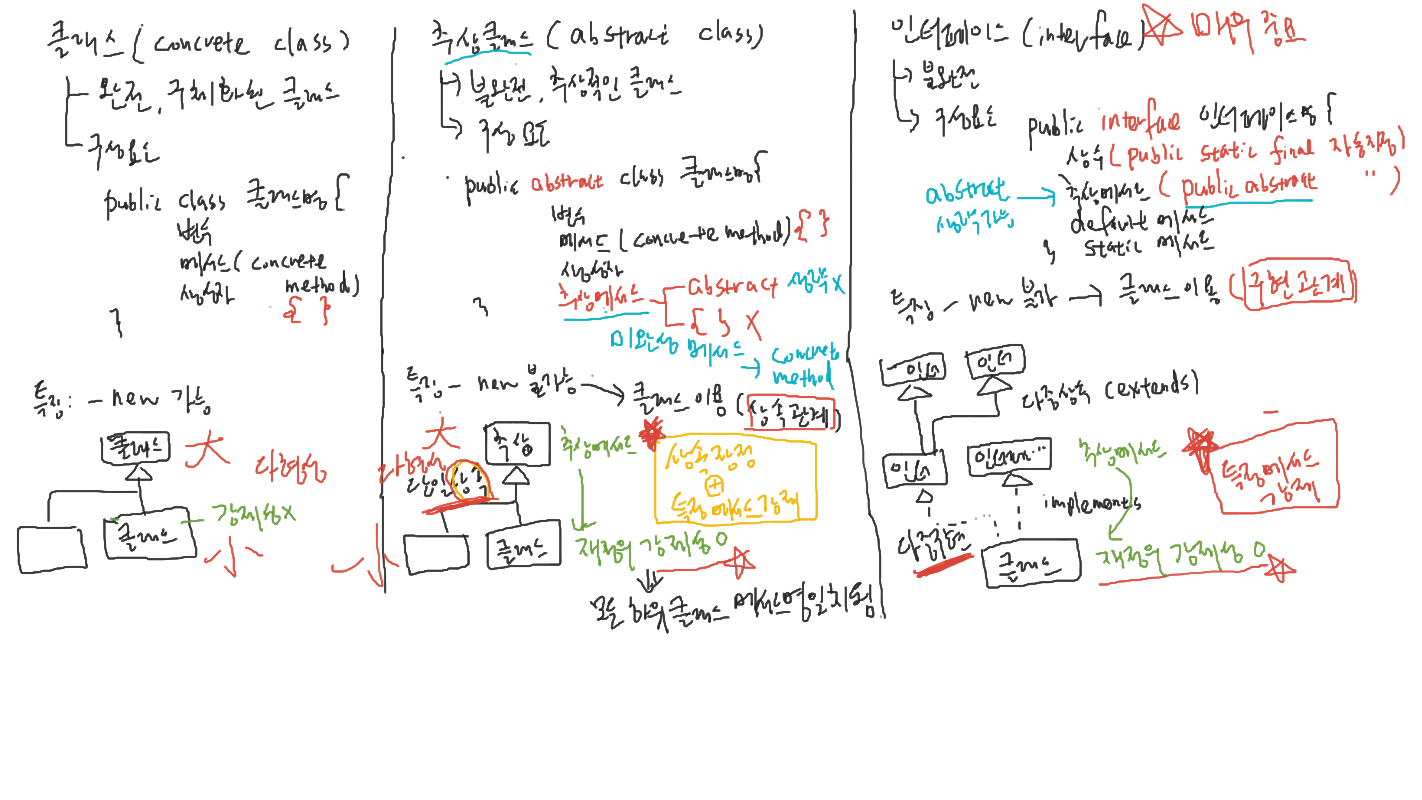 클래스 (concrete class)
완전, 구체화된 클래스
구성요소
public class 클래스명 {
변수
메서드 (concrete method)
{ }
생성자
}
특징: - new 가능
클래스
大
다형성
강제성 X
클래스
小
추상클래스 (abstract class)
불완전, 추상적인 클래스
구성요소
public abstract class 클래스명 {
변수
메서드 (concrete method) { }
생성자
추상메서드
abstract 생략 X
{ } X
}
미완성 메서드 → concrete method
특징 - new 불가능 → 클래스 이용 (상속관계)
大
다형성
추상
추상메서드
단일상속
상속장점
+
특정메서드강제
클래스
小
재정의 강제성 O
모든 하위클래스 메서드명일치됨
인터페이스 (interface) ☆ 매우 중요
불완전
구성요소
public interface 인터페이스명 {
상수 (public static final 자동지정)
abstract 생략가능 → 추상메서드 (public abstract " )
default 메서드
static 메서드
}
특징 - new 불가 → 클래스 이용 (구현관계)
인터
인터
다중상속 (extends)
인터
인터페..
추상메서드
특정메서드
강제
implements
다중구현
클래스
재정의 강제성 O